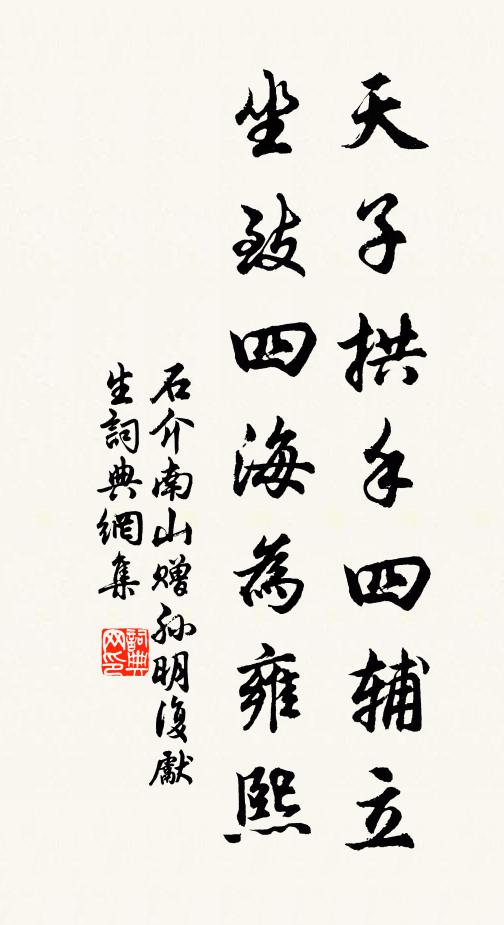 天子拱手四辅立
坐致四海為雍熙
石介南山赠孙明復獻
生詞典網集
詞典网印